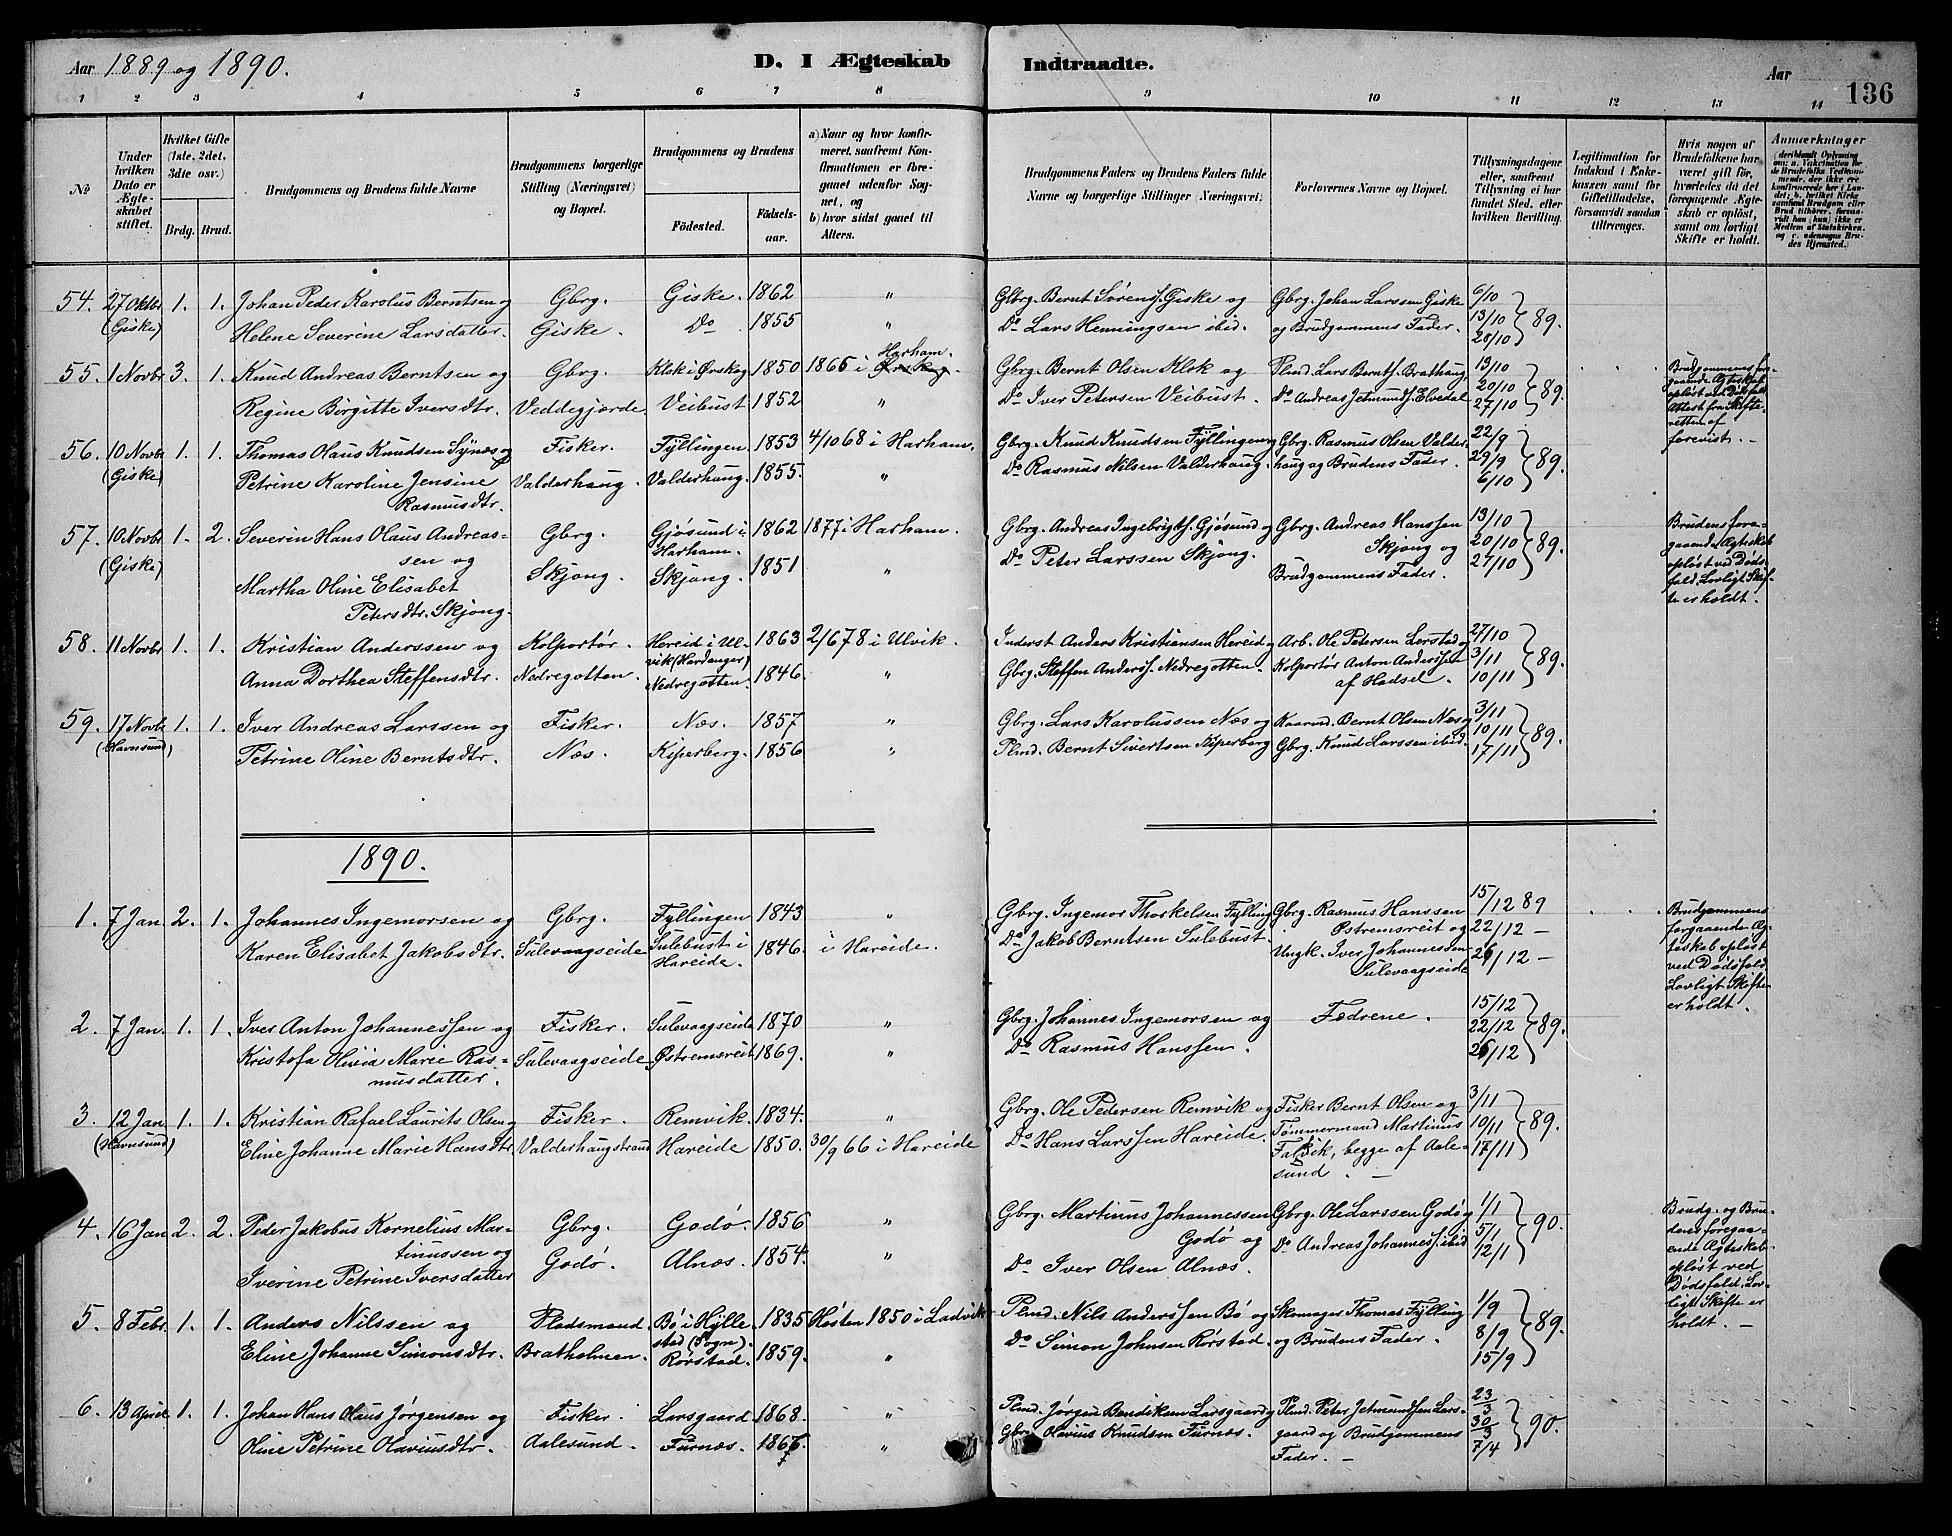 Aar 1889 og 1890.
D. I Ægteskab Indtraadte.
Aar
136
1 2 3 4 5 6 7 8 9 10 11 12 13 14
No
Under hvilken Dato er Ægteskabet stiftet.
Hvilket Gifte (1ste, 2det, 3die osv.)
Brdg. Brud.
Brudgommens og Brudens fulde Navne
Brudgommens borgerlige Stilling (Næringsvei) og Bopæl.
Brudgommens og Brudens
Fødested. Fødsels-aar.
a) Naar og hvor konfirmeret, saafremt Konfirmationen er foregaaet udenfor Sognet, og
b) hvor sidst gaaet til Alters.
Brudgommens Faders og Brudens Faders fulde Navne og borgerlige Stillinger (Næringsvei).
Forlovernes Navne og Bopæl.
Tillysningsdagene eller, saafremt Tillysning ei har fundet Sted, efter hvilken Bevilling.
Legitimation for Indskud i Enkekassen samt for Giftetilladelse, forsaavidt saadan tiltrænges.
Hvis nogen af Brudefolkene har været gift før, hvorledes da det foregaaende Ægteskab er opløst, samt om lovligt Skifte er holdt.
Anmærkninger
deriblandt Oplysning om: a. Vakcination for de Brudefolks Vedkommende, der ikke ere konfirmerede her i Landet; b. hvilket Kirkesamfund Brudgom eller Brud tilhører, forsaavidt han (hun) ikke er Medlem af Statskirken, og c. udensogns Brudes Hjemsted.
54. 27 Oktbr 1. 1. Johan Peder Karolus Berntsen og Gbrg. Giske. 1862 " Gbrg. Bernt Sørens. Giske og Gbrg. Johan Larssen Giske 6/10
(Giske) Helene Severine Larsdatter. Giske. Do 1855 " Do Lars Henningsen ibid. og Brudgommens Fader. 13/10 89.
20/10
55. 1 Novbr 3. 1. Knud Andreas Berntsen og Gbrg. Klok i Ørskog 1850 1865 i Harham. Gbrg. Bernt Olsen Klok og Plmd. Lars Bernts. Brathaug, 13/10
Regine Birgitte Iversdtr. Veddegjerde Veibust 1852 " Do Iver Petersen Veibust. Do Andreas Jetmunds. Elvedal 20/10 89.
27/10
Brudgommens foregaaende Ægteskab opløst ved Dødsfald Attest fra Skifteretten af forevist. -
56. 10 Novbr 1. 1. Thomas Olaus Knudsen Synes og Fisker. Fyllingen. 1853 4/10 68 i Harham. Gbrg. Knud Knudsen Fyllingen og Gbrg. Rasmus Olsen Valder- 22/9
(Giske) Petrine Karoline Jensine Valderhaug. Valderhaug. 1855. " Do Rasmus Nilsen Valderhaug. haug og Brudens Fader. 29/9 89.
Rasmusdtr. 6/10
57. 10 Novbr 1. 2. Severin Hans Olaus Andreas- Gbrg. Gjøsund i 1862 1877 i Harham. Gbrg. Andreas Ingebrigts. Gjøsund og Gbrg. Andreas Hanssen 13/10
(Giske) sen og Skjong. Harham. Do Peter Larssen Skjong. Skjong og 20/10 89.
Martha Oline Elisabet Skjong. 1851 " Brudgommens Fader. 27/10
Petersdtr. Skjong.
Brudens foregaaende Ægteskab opløst ved Dødsfald. Lovligt Skifte er holdt.
58. 11 Novbr 1. 1. Kristian Anderssen og Kolportør. Hereid i Ul- 1863 2/6 78 i Ulvik. Inderst Anders Kristiansen Hereid og Arb. Ole Petersen Lerstad og 27/10
vik (Hardanger)
Anna Dorthea Steffensdtr. Nedregotten. Nedregotten. 1846. " Gbrg. Steffen Anders. Nedregotten. Kolportør Anton Anderssen 3/11 89.
af Hadsel. 10/11
59. 17 Novbr 1. 1. Iver Andreas Larssen og Fisker. Næs. 1857 " Gbrg. Lars Karolussen Næs og Kaarmd. Bernt Olsen Næs og 3/11
(Havnsund) Petrine Oline Berntsdtr. Næs. Kiperberg. 1856 " Plmd. Bernt Sivertsen Kiperberg Gbrg. Knud Larssen ibid. 10/11 89.
17/11
1890.
1. 7 Jan. 2. 1. Johannes Ingemorsen og Gbrg. Fyllingen 1843 " Gbrg. Ingemor Thorkelsen Fylling Gbrg. Rasmus Hanssen 15/12 89
Karen Elisabet Jakobsdtr. Sulevaagseide Sulebust i Hareide. 1846. i Hareide. Do Jakob Berntsen Sulebust. Østremsreit og 22/12 -
Ungk. Iver Johannessen Sulevaagseide 26/12 -
Brudgommens forgaaende Ægteskab opløst ved Dødsfald. Lovligt Skifte er holdt.
2. 7 Jan. 1. 1. Iver Anton Johannessen og Fisker. Sulevaagseide 1870 " Gbrg. Johannes Ingemorsen og Fædrene. 15/12
Kristofa Olivia Marie Ras- Sulevaagseide Østremsreit 1869. " Do Rasmus Hanssen. 22/12 89.
musdatter. 26/12
3. 12 Jan. 1. 1. Kristian Rafael Laurits Olsen og Fisker. Remvik. 1834. " Gbrg. Ole Pedersen Remvik og Fisker Bernt Olsen og 3/11
(Havnsund) Eline Johanne Marie Hansdtr. Valderhaugstrand Hareide 1850. 30/9 66 i Hareide Do Hans Larssen Hareide. Tømmermand Martinus 10/11 89.
Falvik, begge af Aale- 17/11
sund. -
4. 16 Jan 2. 2. Peder Jakobus Kornelius Mar- Gbrg. Godø. 1856 " Gbrg. Martinus Johannessen Gbrg. Ole Larssen Godø og 1/1
tinussen og Godø. Alnæs. 1854. " Godø og Do Andreas Johannes. ibid 5/1 90.
Iverine Petrine Iversdatter Do Iver Olsen Alnæs. 12/1
Brudg. og Brudens foregaaende Ægteskab opløst ved Dødsfald. Lovligt Skifte er holdt. -
5. 8 Febr. 1. 1. Anders Nilssen og Pladsmand. Bø i Hylle- 1835 Høsten 1850 i Ladvik Plmd. Nils Anderssen Bø og Skomager Thomas Fylling 1/9
stad (Sogn).
Eline Johanne Simonsdtr. Bratholmen. Rørstad. 1859. " Do Simon Johnsen Rørstad og Brudens Fader. 8/9 89.
15/9
6. 13 April 1. 1. Johan Hans Olaus Jørgensen og Fisker. Larsgaard 1868. " Plmd. Jørgen Bendiksen Larsgaard og Plmd. Peter Jetmundsen Lars- 23/3
Oline Petrine Olaviusdtr. Aalesund. Furnæs. 1867. " Gbrg. Olavius Knudsen Furnæs. gaard og Brudgommens 30/3 90.
Fader. - 7/4